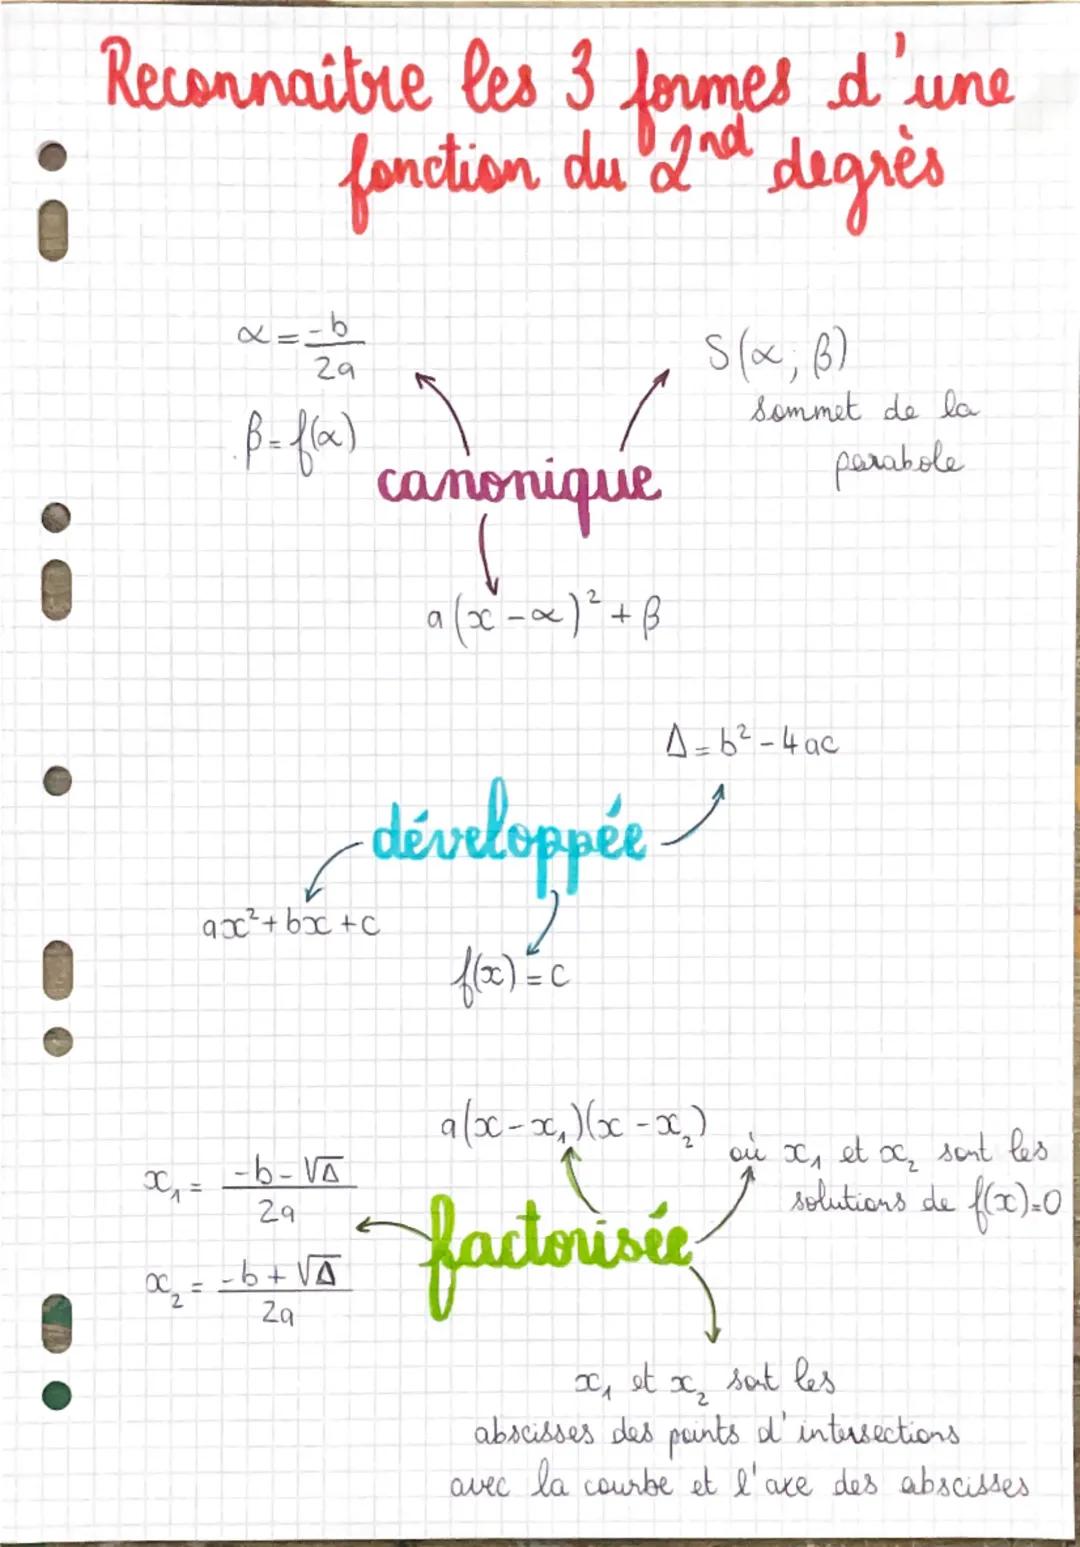 Reconnaitre les 3 formes d'une
fonction du 2nd degrès
α = -b/2a
β = f(α)
S(α; β)
sommet de la
parabole
canonique
a(x - α)² + β
Δ = b² - 4ac
développée
ax² + bx + c
f(x) = c
a(x - x₁)(x - x₂)
où x₁ et x₂ sont les
solutions de f(x)=0
x₁ = -b - √Δ/2a
factorisée
x₂ = -b + √Δ/2a
x₁ et x₂ sont les
abscisses des points d'intersections
avec la courbe et l'axe des abscisses